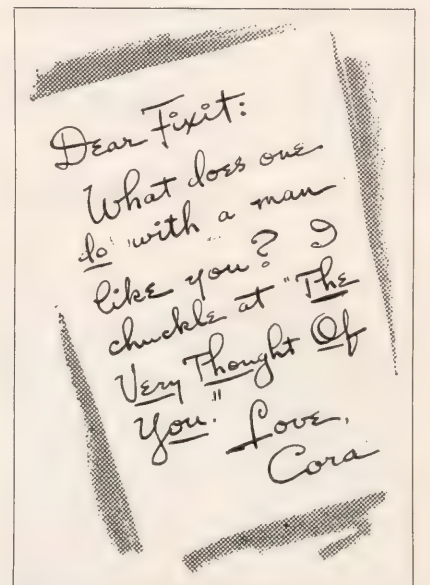 Dear Fixit:
What does one
do with a man
like you? I
chuckle at "The
Very Thought Of
You." Love,
Cora